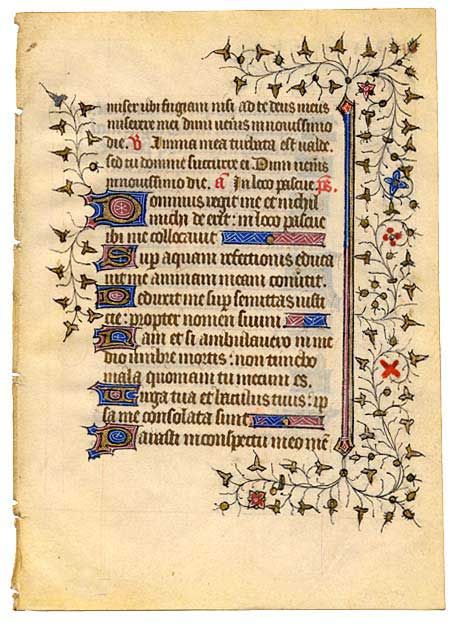 miser ubi fugiam nisi ad te deus meus
miserere mei dum veneris in novissimo
die. V Anima mea turbata est valde.
sed tu domine succurre ei. Dum veneris
in novissimo die. a In loco pascue. ps.
Dominus regit me et nichil
michi deerit: in loco pascue
ibi me collocavit
Sup aquam refectionis educa
vit me animam meam convertit.
Deduxit me sup semitas iusti
cie: propter nomen suum
Nam et si ambulavero in me
dio umbre mortis: non timebo
mala quoniam tu mecum es.
Virga tua et baculus tuus: ip
sa me consolata sunt
Parasti in conspectu meo mē